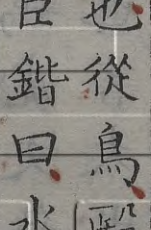 也從鳥殹
臣鍇曰水